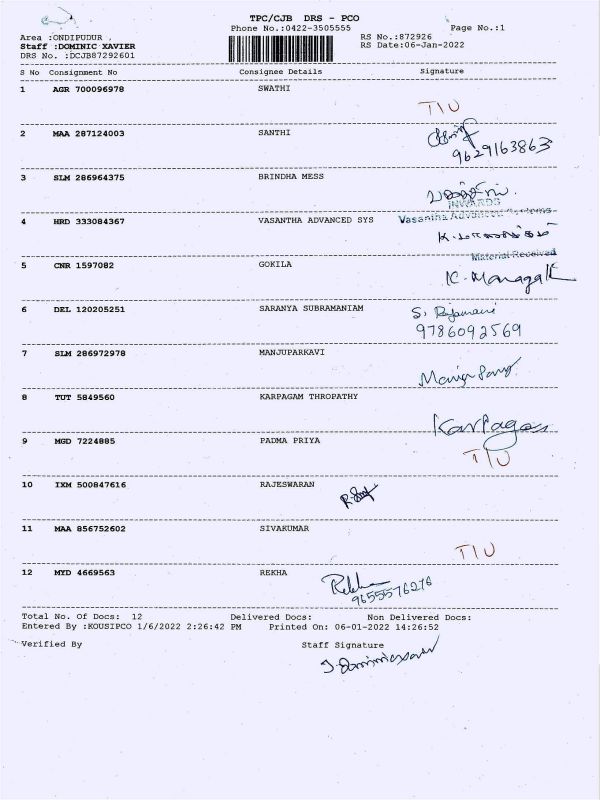 TPC/CJB DRS - PCO
Phone No.:0422-3505555 Page No.:1
Area :ONDIPUDUR , RS No.:872926
Staff :DOMINIC XAVIER RS Date:06-Jan-2022
DRS No. :DCJB87292601
S No Consignment No Consignee Details Signature
1 AGR 700096978 SWATHI
T/U
2 MAA 287124003 SANTHI
9629163863
3 SLM 286964375 BRINDHA MESS
INWARDS
4 HRD 333084367 VASANTHA ADVANCED SYS Vasantha Advanced Systems
Material Received
5 CNR 1597082 GOKILA
6 DEL 120205251 SARANYA SUBRAMANIAM S. Rajamani
9786092569
7 SLM 286972978 MANJUPARKAVI
8 TUT 5849560 KARPAGAM THROPATHY
Karpagam
9 MGD 7224885 PADMA PRIYA
T/U
10 IXM 500847616 RAJESWARAN
11 MAA 856752602 SIVAKUMAR
T/U
12 MYD 4669563 REKHA Rekha
9655576276
Total No. Of Docs: 12 Delivered Docs: Non Delivered Docs:
Entered By :KOUSIPCO 1/6/2022 2:26:42 PM Printed On: 06-01-2022 14:26:52
Verified By Staff Signature